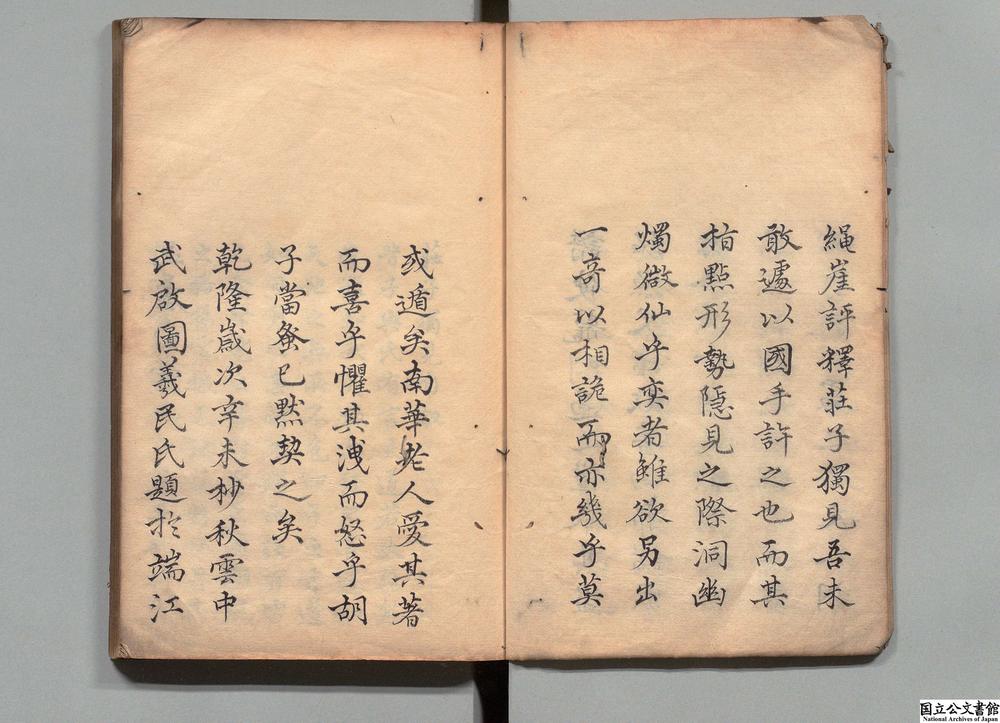 繩崖評釋莊子獨見吾未
敢遽以國手許之也而其
指點形勢隱見之際洞幽
燭微仙乎奕者雖欲另出
一奇以相詭而亦幾乎莫
或遁矣南華老人愛其著
而喜乎懼其洩而怒乎胡
子當蚤已默契之矣
乾隆歲次辛未杪秋雲中
武啟圖羲民氏題於端江
国立公文書館
National Archives of Japan